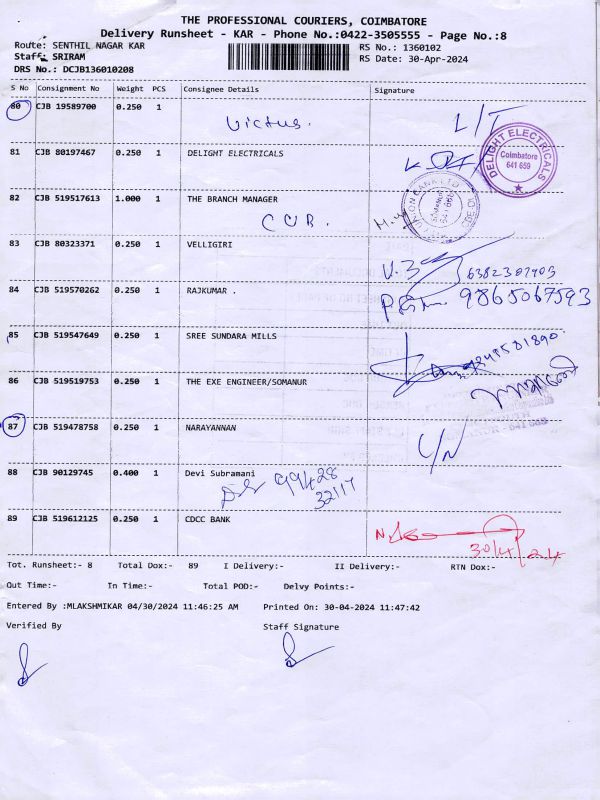 THE PROFESSIONAL COURIERS, COIMBATORE
Delivery Runsheet - KAR - Phone No.:0422-3505555 - Page No.:8
Route: SENTHIL NAGAR KAR
RS No.: 1360102
Staff: SRIRAM
RS Date: 30-Apr-2024
DRS No.: DCJB136010208
S No Consignment No Weight PCS Consignee Details Signature
80 CJB 19589700 0.250 1
Victus.
L/T
81 CJB 80197467 0.250 1 DELIGHT ELECTRICALS
DELIGHT ELECTRICALS
Coimbatore
641 659
82 CJB 519517613 1.000 1 THE BRANCH MANAGER
CUB.
83 CJB 80323371 0.250 1 VELLIGIRI
84 CJB 519570262 0.250 1 RAJKUMAR .
9865067593
85 CJB 519547649 0.250 1 SREE SUNDARA MILLS
86 CJB 519519753 0.250 1 THE EXE ENGINEER/SOMANUR
87 CJB 519478758 0.250 1 NARAYANNAN
88 CJB 90129745 0.400 1 Devi Subramani
99428
32117
89 CJB 519612125 0.250 1 CDCC BANK
30/4/24
Tot. Runsheet:- 8 Total Dox:- 89 I Delivery:- II Delivery:- RTN Dox:-
Out Time:- In Time:- Total POD:- Delvy Points:-
Entered By :MLAKSHMIKAR 04/30/2024 11:46:25 AM Printed On: 30-04-2024 11:47:42
Verified By Staff Signature